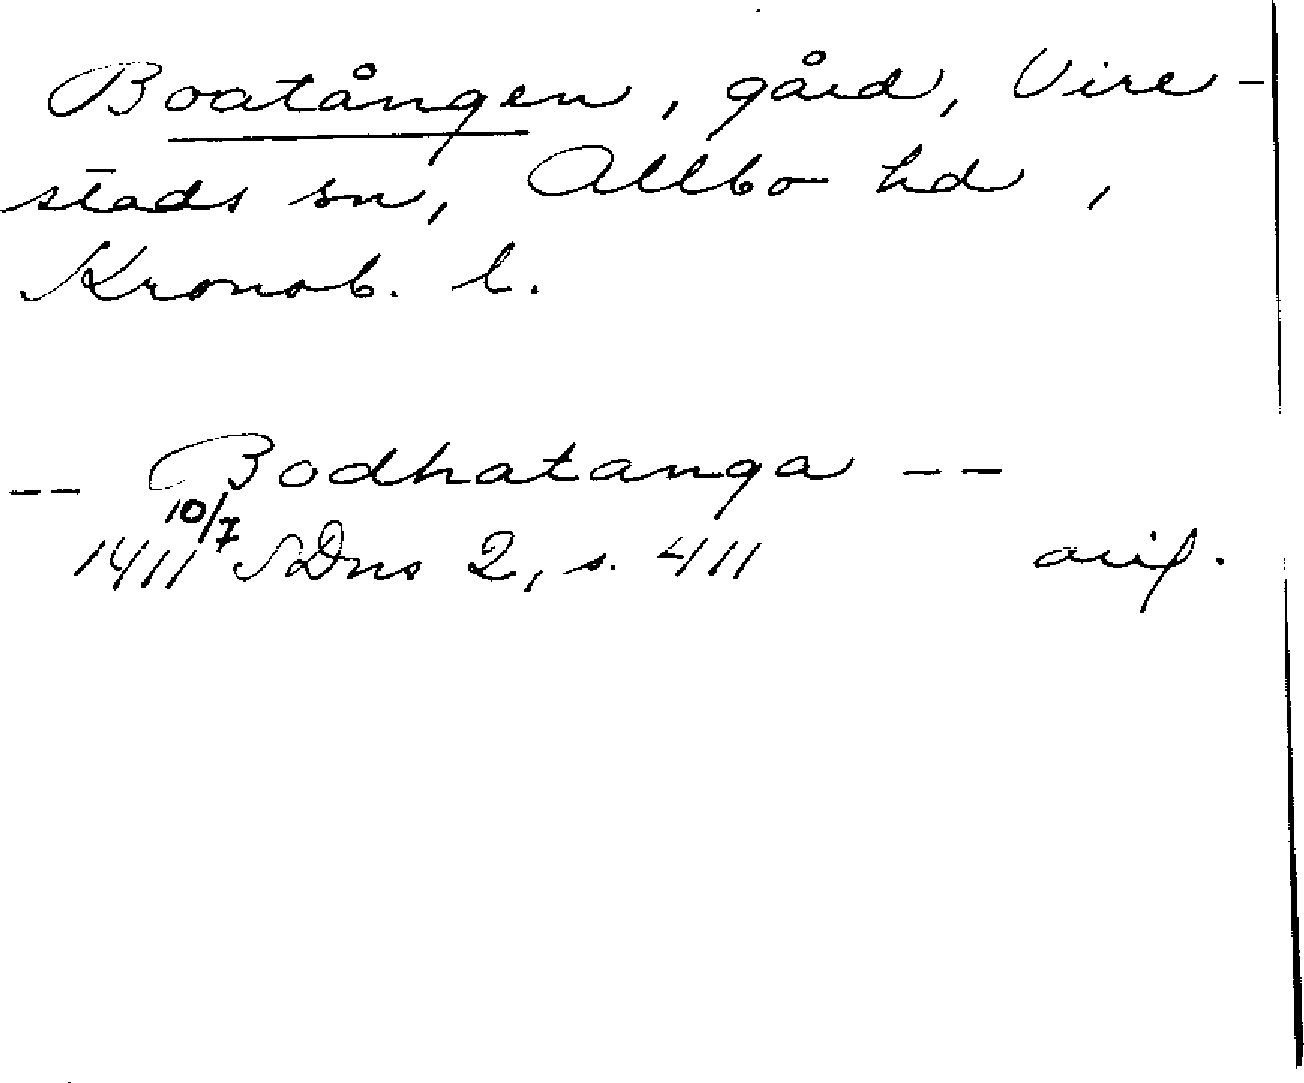 Boatången, gård, Vire-
stads sn, Allbo hd,
Kronob. l.
-- Bodhatanga --
1411 10/7 SDns 2, s. 411 avs.